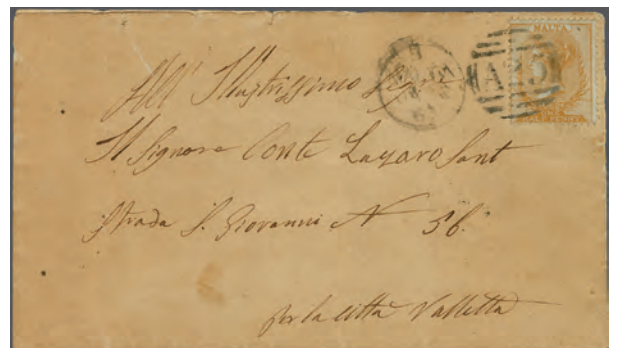 MALTA
A25
HALF PENNY
All' Illustrissimo Sig
Il Signore Conte Lazaro Sant
Strada S. Giovanni N 36.
per la citta Valletta